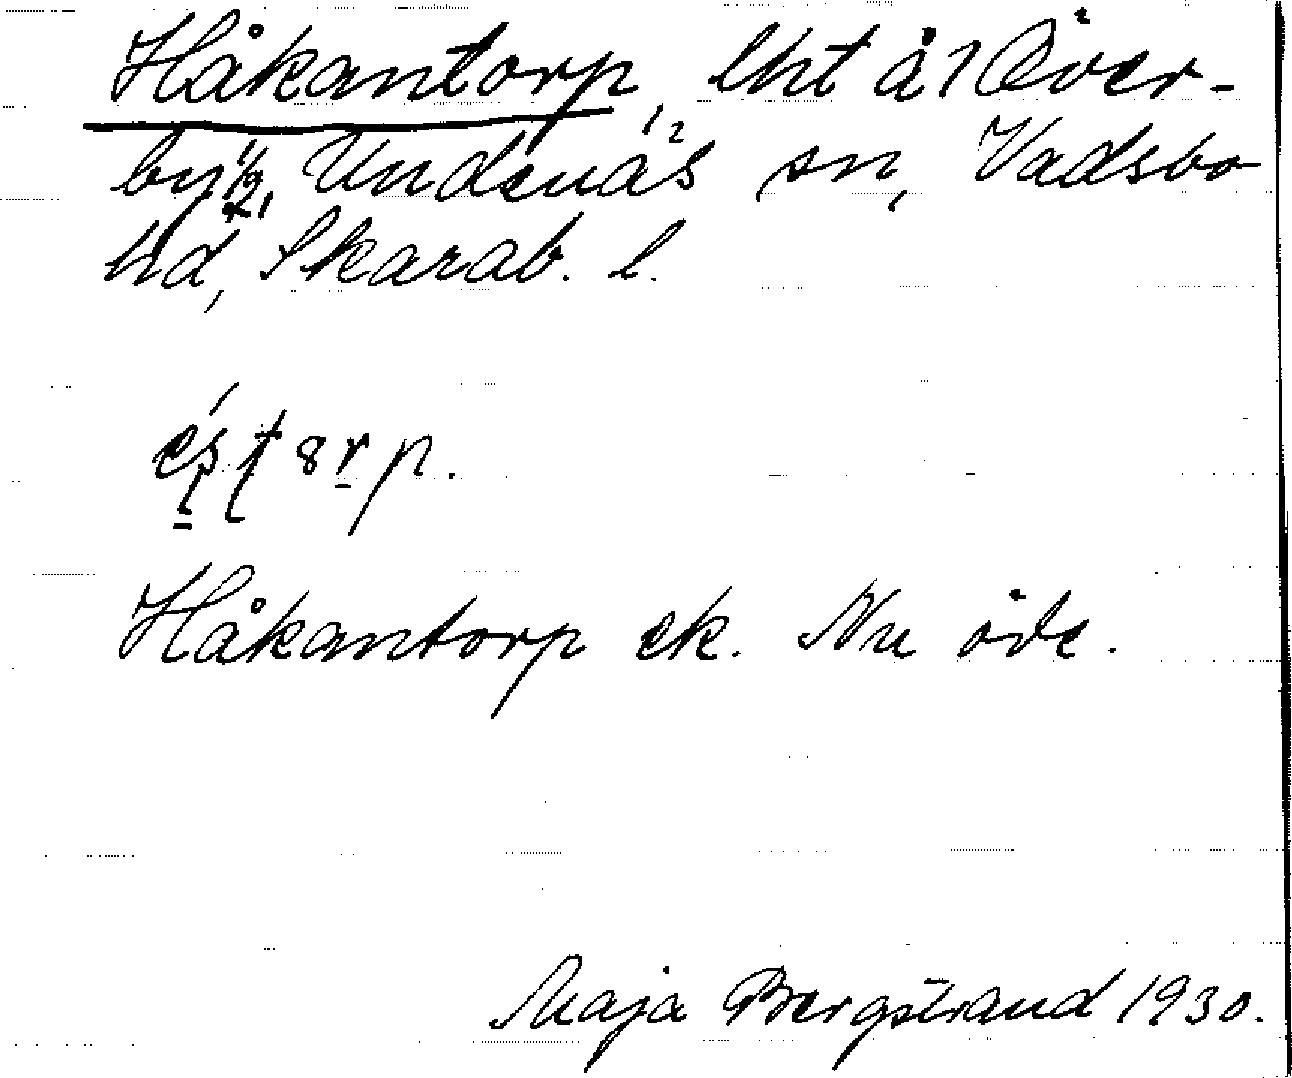 Håkantorp, lht å 1 Över-
by 1/2, Undenäs sn, Vadsbo
hd, Skarab. l.
Håkantorp ek. Nu öde.
Maja Bergstrand 1930.